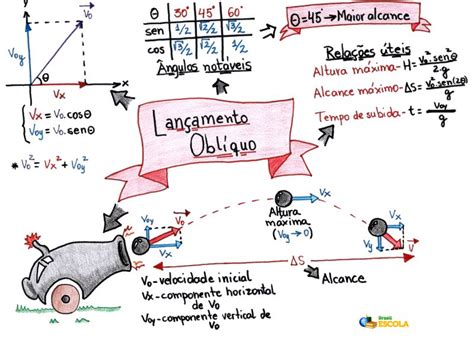 y
V₀
V₀y
θ
Vx
x
Vx = V₀.cosθ
V₀y = V₀.senθ
* V₀² = Vx² + V₀y²
θ 30° 45° 60°
sen 1/2 √2/2 √3/2
cos √3/2 √2/2 1/2
Ângulos notáveis
θ=45° → Maior alcance
Relações úteis
Altura máxima - H = V₀².sen²θ / 2.g
Alcance máximo - ΔS = V₀².sen(2θ) / g
Tempo de subida - t = V₀y / g
Lançamento
Oblíquo
V₀y
V₀
Vx
Altura
máxima
(V₀y → 0)
Vx
Vx
Vy
V
ΔS
Alcance
V₀ - velocidade inicial
Vx - componente horizontal
de V₀
V₀y - componente vertical de
V₀
Brasil
ESCOLA